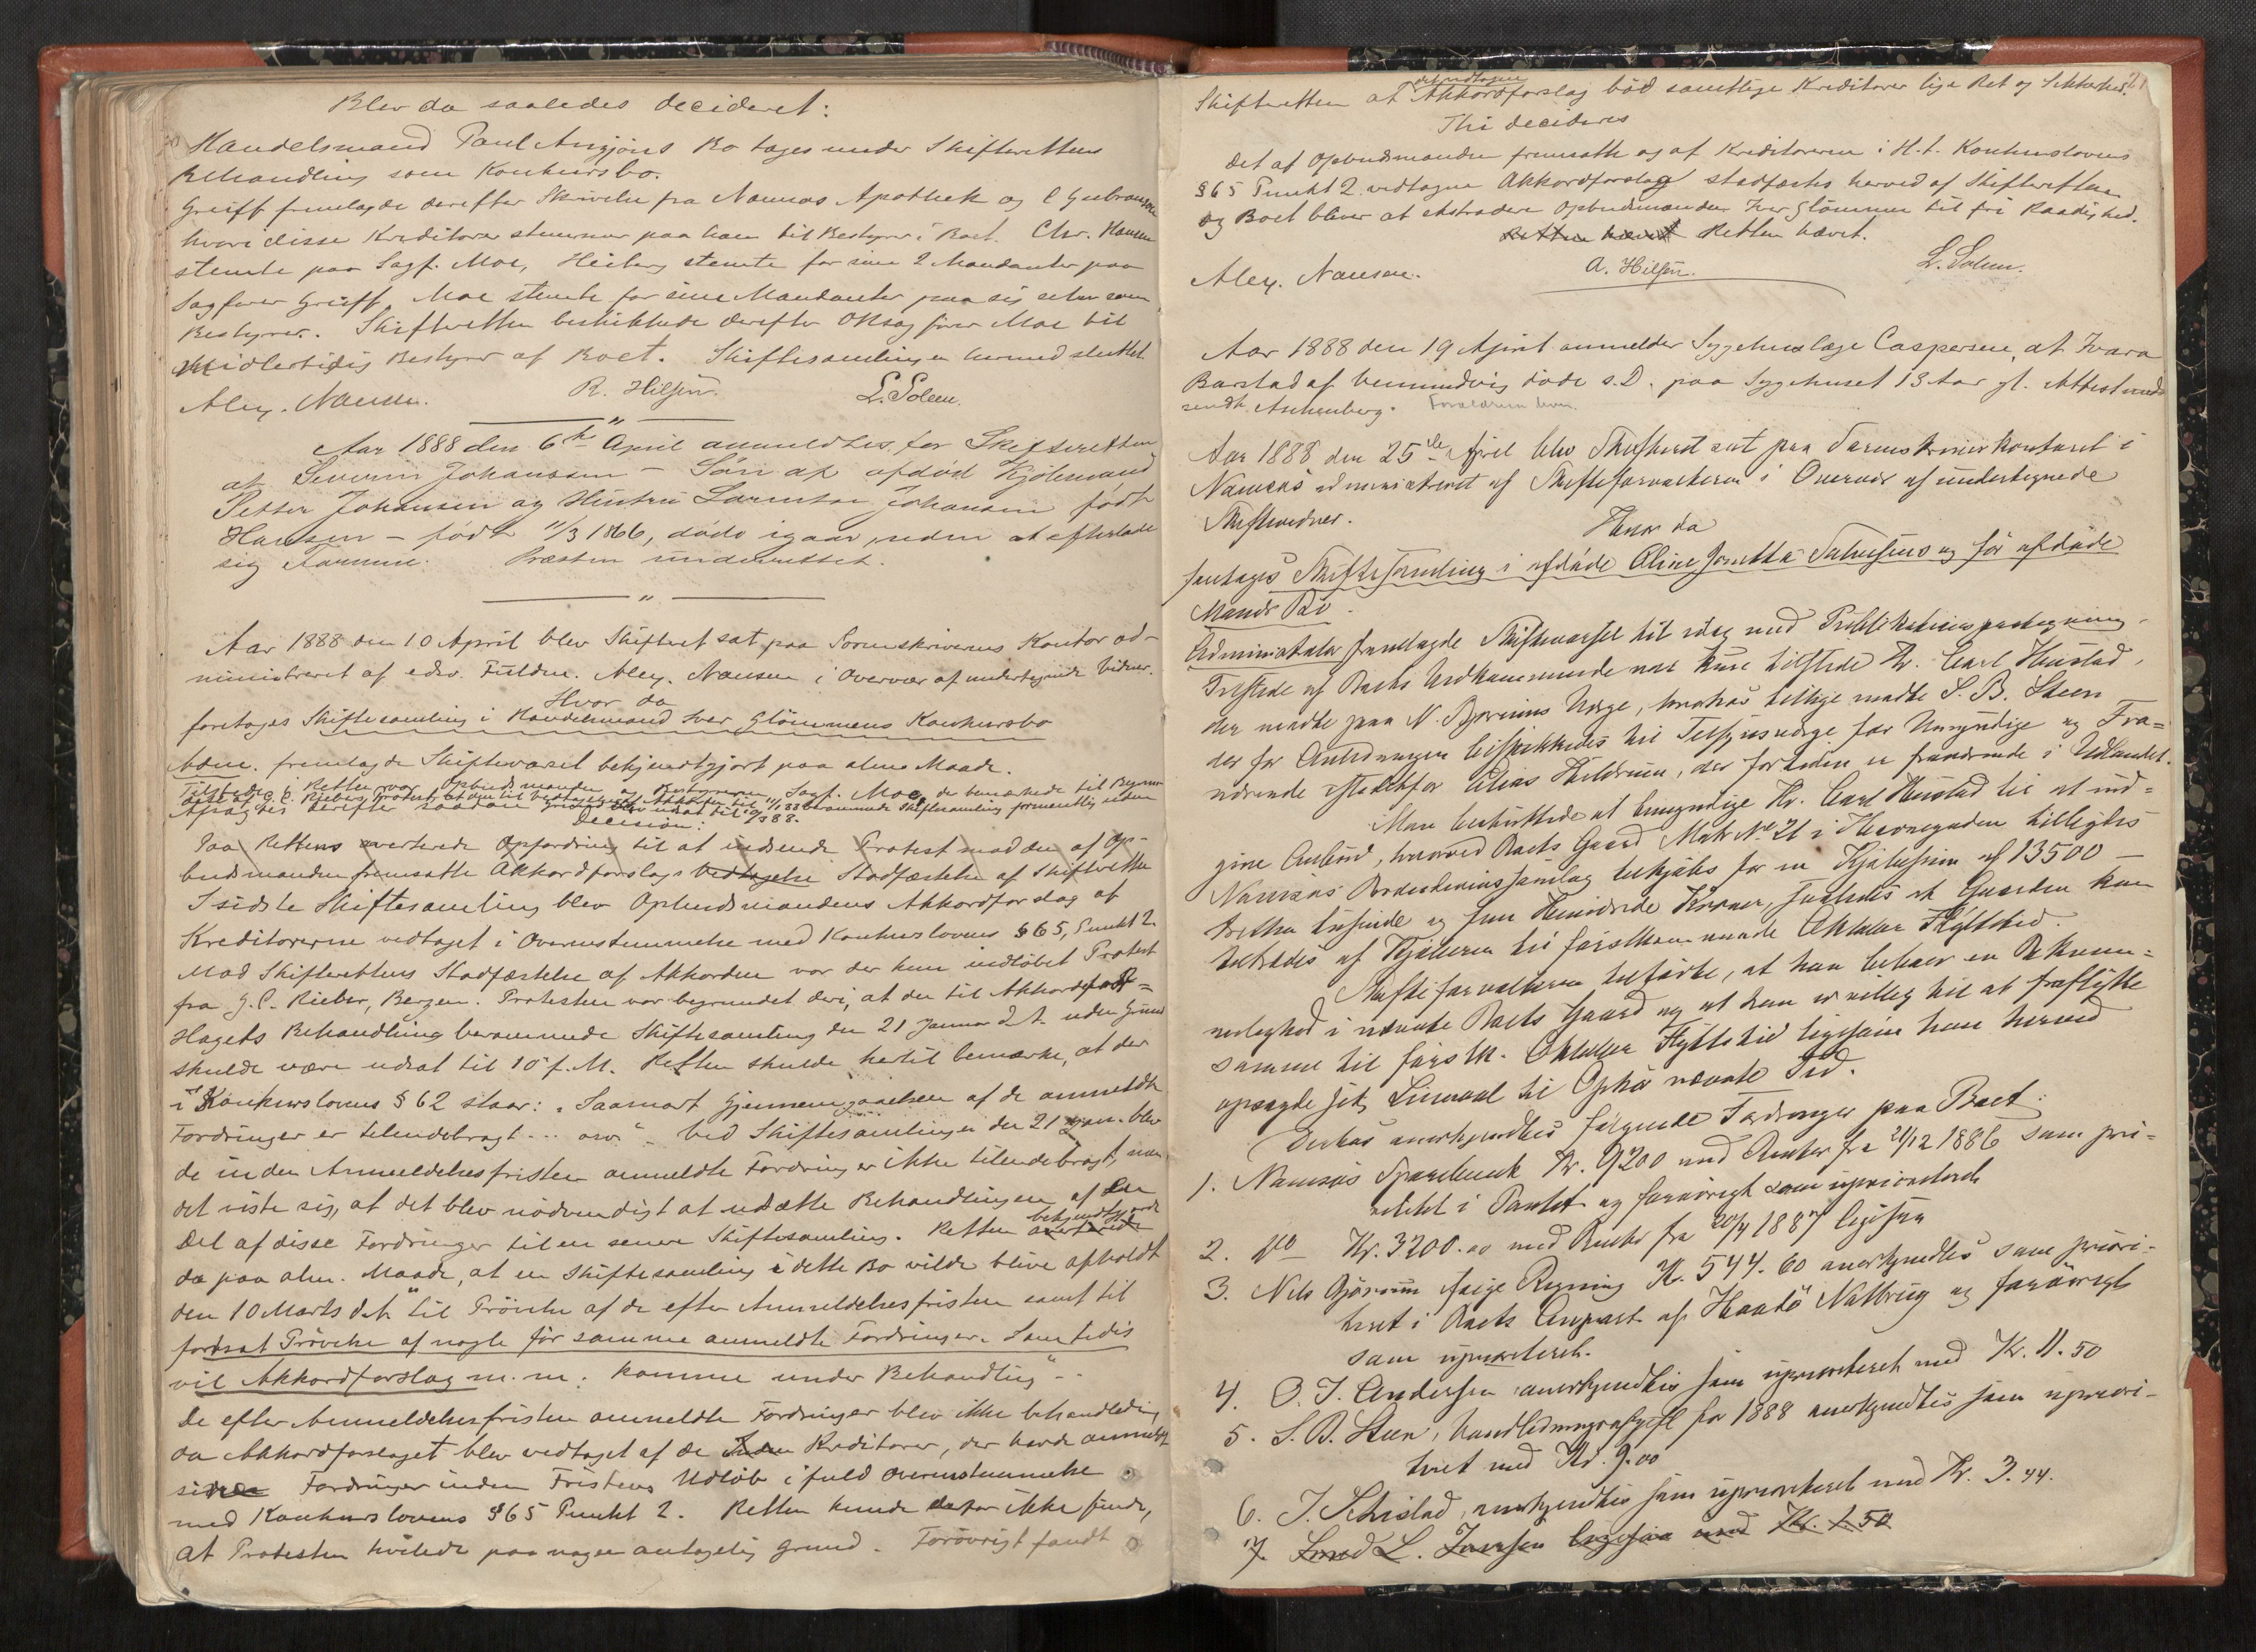 Blev da saaledes decideret:
Handelsmand Paul Angjøns Bo tages under Skifterettens
Behandling som Konkursbo.
Greiff fremlagde derefter Skrivelse fra Namsos Apothek og C Gulbransen
hvori disse Kreditorer stemmer paa ham til Bestyrer i Boet. Chr. Hansen
stemte paa Sagf. Moe, Heiberg stemte for sine 2 Mandanter paa
Sagfører Greiff, Moe stemte for sine Mandanter paa sig selv som
Bestyrer. Skifteretten beskikkede derefter ORsagfører Moe til
midlertidig Bestyrer af Boet. Skiftesamlingen hermed sluttet
Alex. Nansen. R. Hilsen. L. Solem.
Aar 1888 den 6te April anmeldtes for Skifteretten
at Severin Johanssen – Søn af afdød
Petter Johansen og Hustru Johansen født
Hansen – født 11/3 1866, døde igaar, uden at efterlade
sig Formue. Præsten underrettet.
Aar 1888 den 10 April blev Skifteret sat paa Sorenskriverens Kontor ad-
ministreret af edsv. Fuldm. Alex. Nansen i Overvær af undertegnede Vidner.
Hvor da
foretages Skiftesamling i Handelsmand Iver Glømmens Konkursbo
Adm. fremlagde Skiftevarsel bekjendtgjort paa alm. Maade.
Tilstede i Retten var Opbudsmanden og Bestyreren, Sagf. Moe, der
Decision:
Paa Rettens averterede Opfordring til at indsende Protest mod den af Op-
budsmanden fremsatte Akkordforslags Vedtagelse Stadfæstelse af Skifteretten
I sidste Skiftesamling blev Opbudsmandens Akkordforslag af
Kreditorerne vedtaget i Overensstemmelse med Konkurslovens § 65, Punkt 2.
Mod Skifterettens Stadfæstelse af Akkorden var der kun indløbet Protest
fra G. C. Rieber, Bergen. Protesten var begrundet deri, at den til Akkordfor=
slagets Behandling berammede Skiftesamling den 21 Januar d. A. uden Grund
skulde være udsat til 10 f. M. Retten skulde hertil bemærke, at der
i Konkurslovens § 62 staar: "Saasnart Gjennemgaaelsen af de anmeldte
Fordringer er tilendebragt ... osv." – Ved Skiftesamlingen den 21 Jan. blev
de inden Anmeldelsesfristen anmeldte Fordringer ikke tilendebragt, men
det viste sig, at det blev nødvendigt at udsætte Behandlingen af en
Del af disse Fordringer til en senere Skiftesamling. Retten averterede bekjendtgjorde
da paa alm. Maade, at en Skiftesamling i dette Bo vilde blive afholdt
den 10 Marts d. A. "til Prøvelse af de efter Anmeldelsesfristen samt til
fortsat Prøvelse af nogle før samme anmeldte Fordringer. Samtidig
vil Akkordforslag m. m. komme under Behandling" –
De efter Anmeldelsesfristen anmeldte Fordringer blev ikke behandlede,
da Akkordforslaget blev vedtaget af de Kreditorer, der havde anmeldt
sine Fordringer inden Fristens Udløb i fuld Overensstemmelse
med Konkurslovens § 65 Punkt 2. Retten kunde derfor ikke finde,
at Protesten hvilede paa nogen antagelig Grund. Forøvrigt fandt
Skifteretten at det vedtagne Akkordforslag bød samtlige Kreditorer lige Ret og Sikkerhed.
Thi decideres
Det af Opbudsmanden fremsatte og af Kreditorerne i H. t. Konkurslovens
§ 65 Punkt 2 vedtagne Akkordforslag stadfæstes herved af Skifteretten
og Boet bliver at ekstradere Opbudsmanden Iver Glømmen til fri Raadighed.
Retten hævet Retten hævet.
Alex. Nansen. A. Hilsen. L. Solem.
Aar 1888 den 19 April anmelder Sygehuslæge Caspersen, at Ivara
Barstad af Vemundvig døde s. D. paa Sygehuset 13 Aar gl. Attest
sendt
Aar 1888 den 25de April blev Skifteret sat paa Sorenskriverkontoret i
Namsos administreret af Skifteforvalteren i Overvær af undertegnede
Skiftevidner.
Hvor da
foretages Skiftesamling i afdøde Oline Jonetta Salvesens og før afdøde
Mands Bo.
Administrator fremlagde Skiftevarsel til idag med Publikationspaategning.
Tilstede af Boets Vedkommende var kun tilstede Hr. Carl Hustad,
der mødte paa N. Værge, desuden tillige mødte S. B. Steen
der for Anledningen beskikkedes til Tilsynsværge for Umyndige og Fra=
værende istedetfor Elias Hildrum, der for tiden er fraværende i Udlandet.
Man besluttede at bemyndige Hr. Carl Hustad til at ind=
give Anbud, hvorved Boets Gaard Matr. No. 21 i Havnegaden tilbydes
Namsos Brændevinssamlag tilkjøbs for en Kjøbesum af 13500 –
tretten tusinde og fem Hundrede Kroner, saaledes at Gaarden kan
tiltrædes af Kjøberen til førstkommende Oktober Flyttetid.
Skifteforvalteren tilførte, at han beboer en Bekvem=
melighed i nævnte Boets Gaard og at han er villig til at fraflytte
samme til førstk. Oktober Flyttetid ligesom han herved
opsagde sit Leiemaal til Ophør nævnte Tid.
Derhos anerkjendtes følgende Fordringer paa Boet:
1. Namsos Sparebank Kr. 9200 med Renter fra 21/12 1886 som pri=
oritet i Pantet og forøvrigt som uprioriteret
2. do Kr. 3200.00 med Renter fra 20/4 1887 ligesaa
3. Nils ifølge Regning Kr. 544.60 anerkjendtes som priori-
teret i Boets Anpart af og forøvrigt
som uprioriteret.
4. O. J. Andersen anerkjendtes som uprioriteret med Kr. 11.50
5. S. B. Steen, for 1888 anerkjendtes som upriori-
teret med Kr. 9.00
6. J. Schistad, anerkjendtes som uprioriteret med Kr. 3.44.
7. L. ligesaa med Kr. 1.50